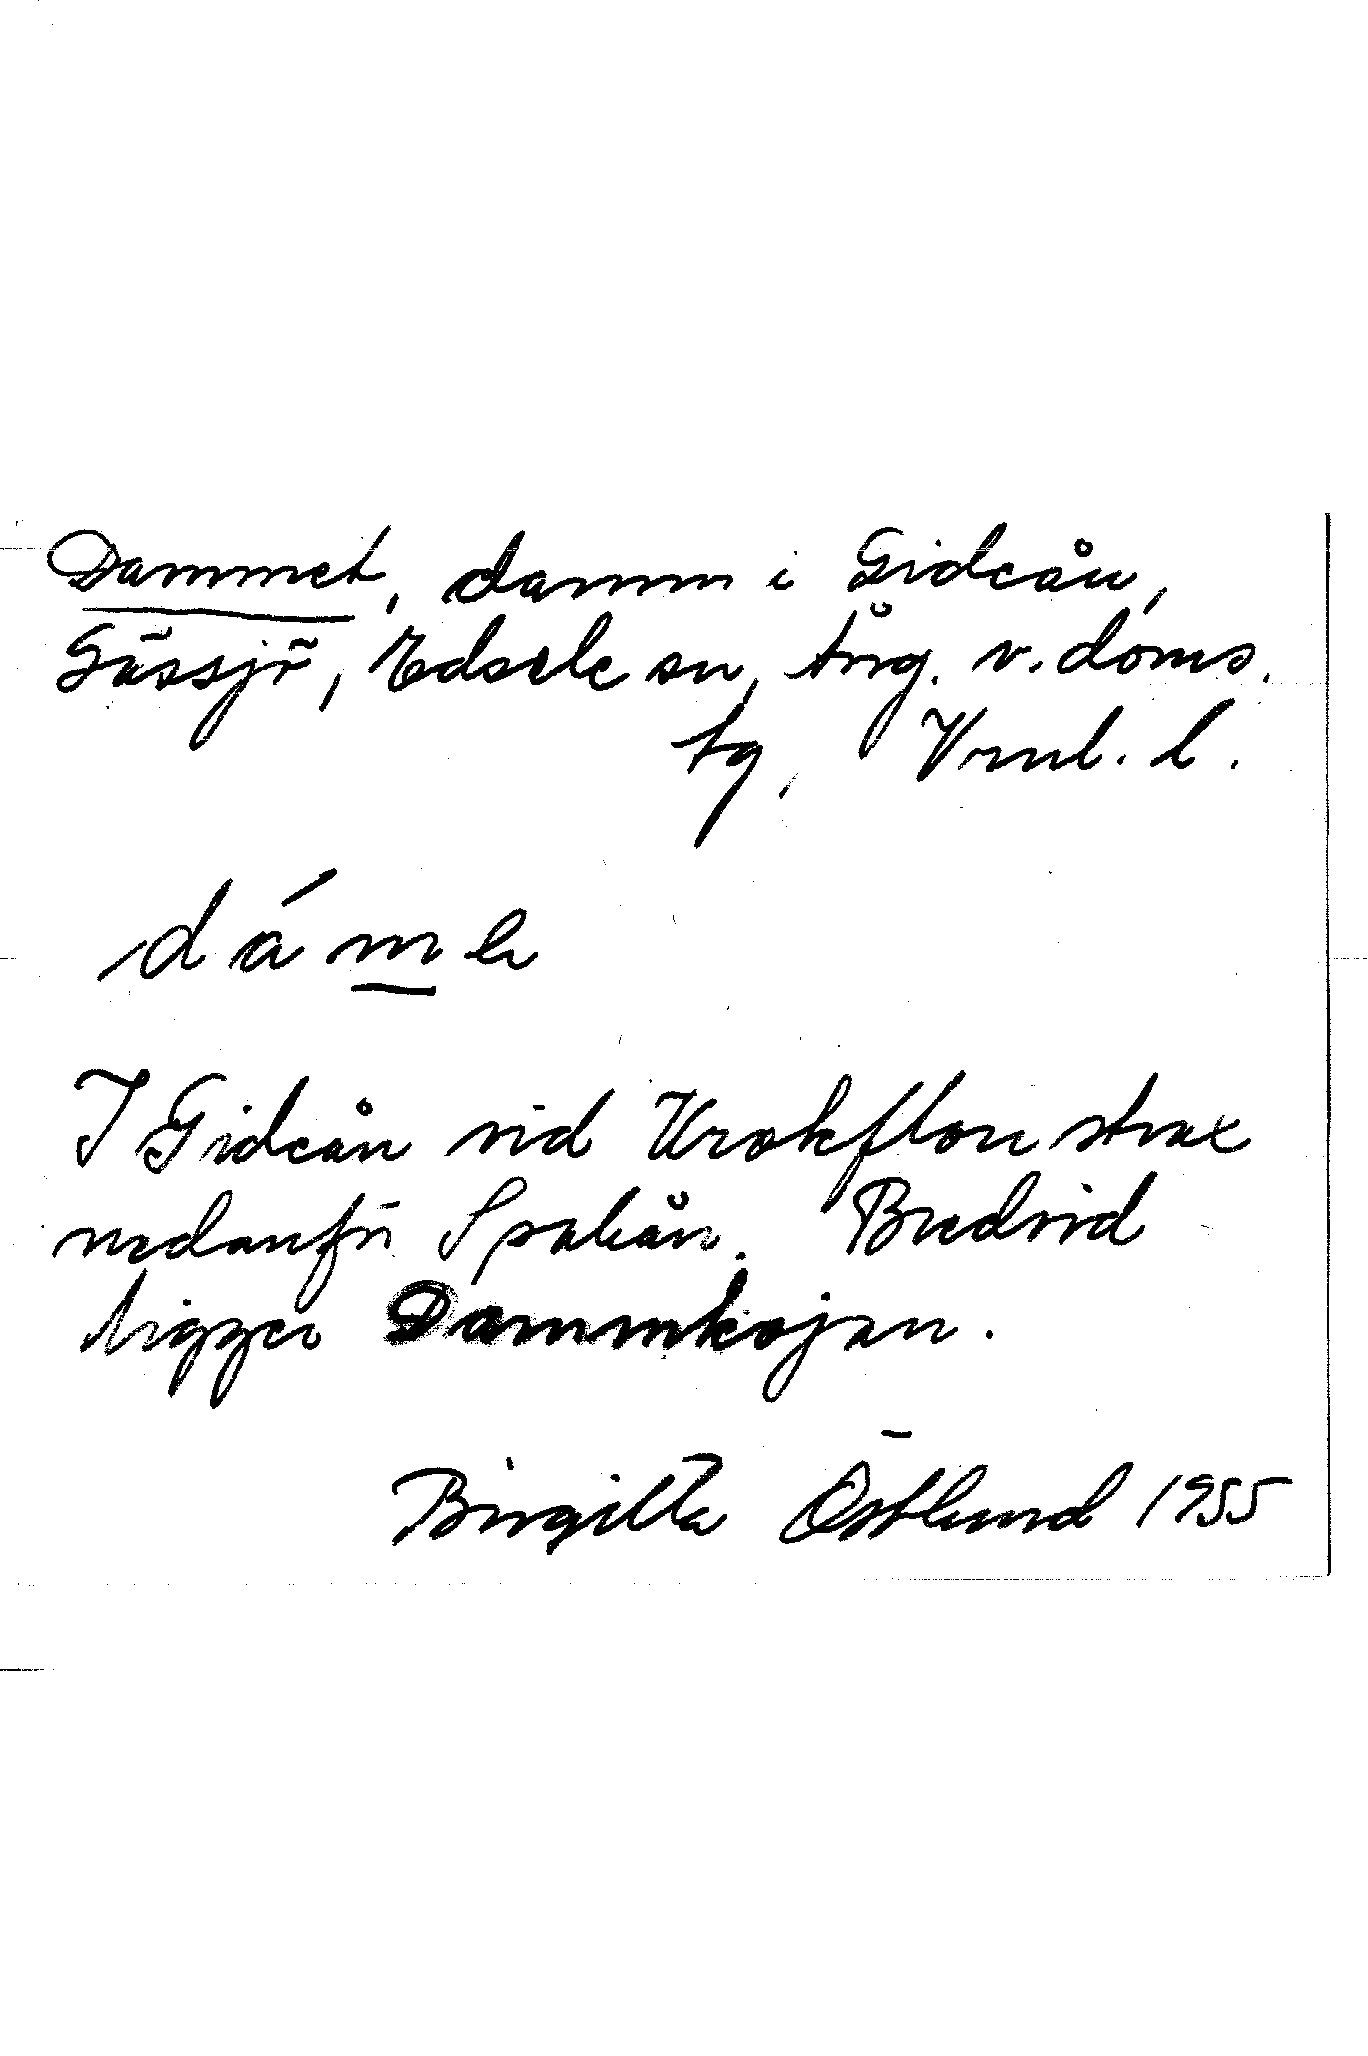 Dammet, damm i Gideån,
Gässjö, Edsele sn, Ång. v. doms.
tg, Vnl. l.
dáme
I Gideån vid Krokflon strax
nedanför Spakån. Bredvid
ligger Dammkojan.
Birgitta Östlund 1955